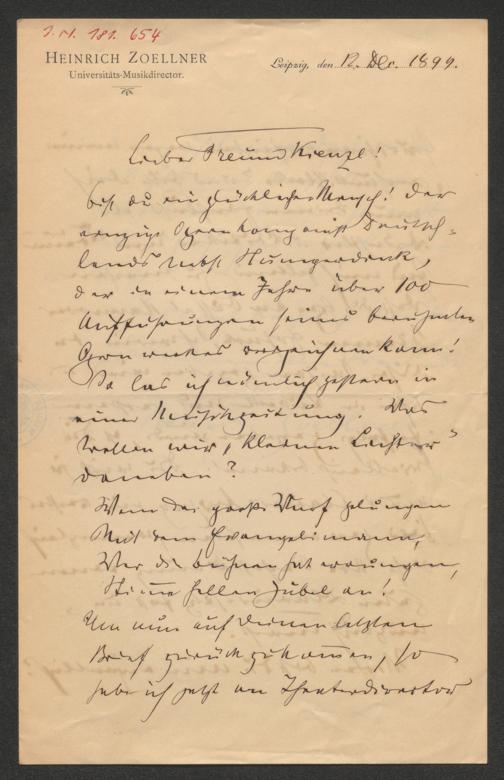 I. N. 181.654
HEINRICH ZOELLNER
Universitäts-Musikdirector.
Leipzig, den 12. Dec. 1899.
Lieber Freund Kienzl!
bist du ein glücklicher Mensch! Der
einzige Opernkomponist Deutsch-
lands nebst Humperdinck,
der in einem Jahre über 100
Aufführungen seines berühmten
Opernwerkes verzeichnen kann!
So las ich nämlich gestern in
einer Musikzeitung. Was
wollen wir "kleinen Lichter"
daneben?
Wem der große Wurf gelungen
Mit dem Evangelimann,
Wer die Bühnen hat errungen,
Stimme hellen Jubel an!
Um nun auf deinen letzten
Brief zurückzukommen, so
habe ich jetzt an Theaterdirector